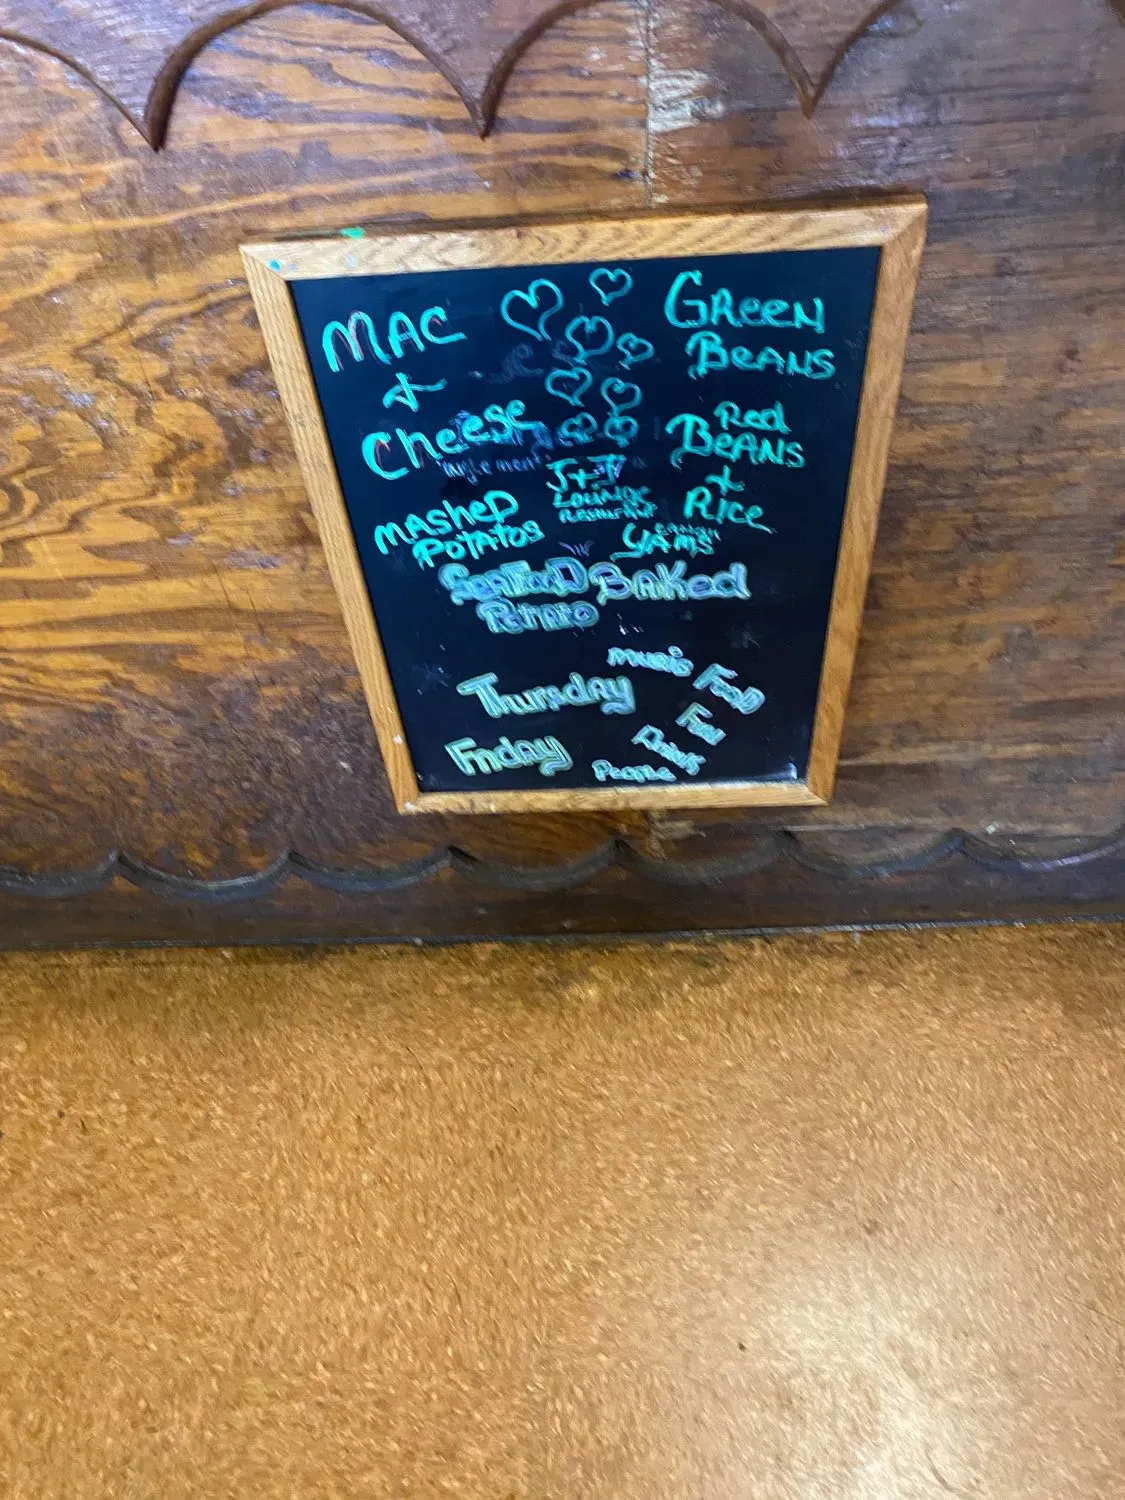 MAC
+
Cheese
MASHED
POTATOS
GREEN
BEANS
Red
BEANS
+
Rice
LOUNGE
RESTAURANT
YAMS
SEAFOOD BAKED
POTATO
Thursday
Friday
Music
Food
Fun
Drinks
People